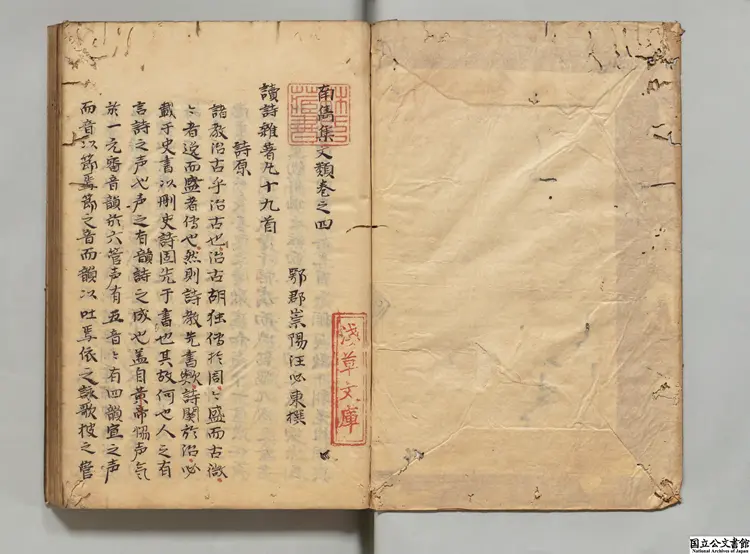 南雋集文類卷之四
鄂郡崇陽汪必東撰
讀詩雜著九十九首
詩原
諧教治古乎治古也治古胡独偹於周〻盛而古微
〻者逆而盛者偹也然則詩教先書欤詩関於治必
載于史書以刪史詩固先于書也其故何也人之有
言詩之声也声之有韻詩之成也盖自黄帝惕声气
於一元審音韻於六管声有五音〻有四韻宣之声
而音以節焉節之音而韻以吐焉依之詠歌披之管
林氏藏書
淺草文庫
国立公文書館
National Archives of Japan